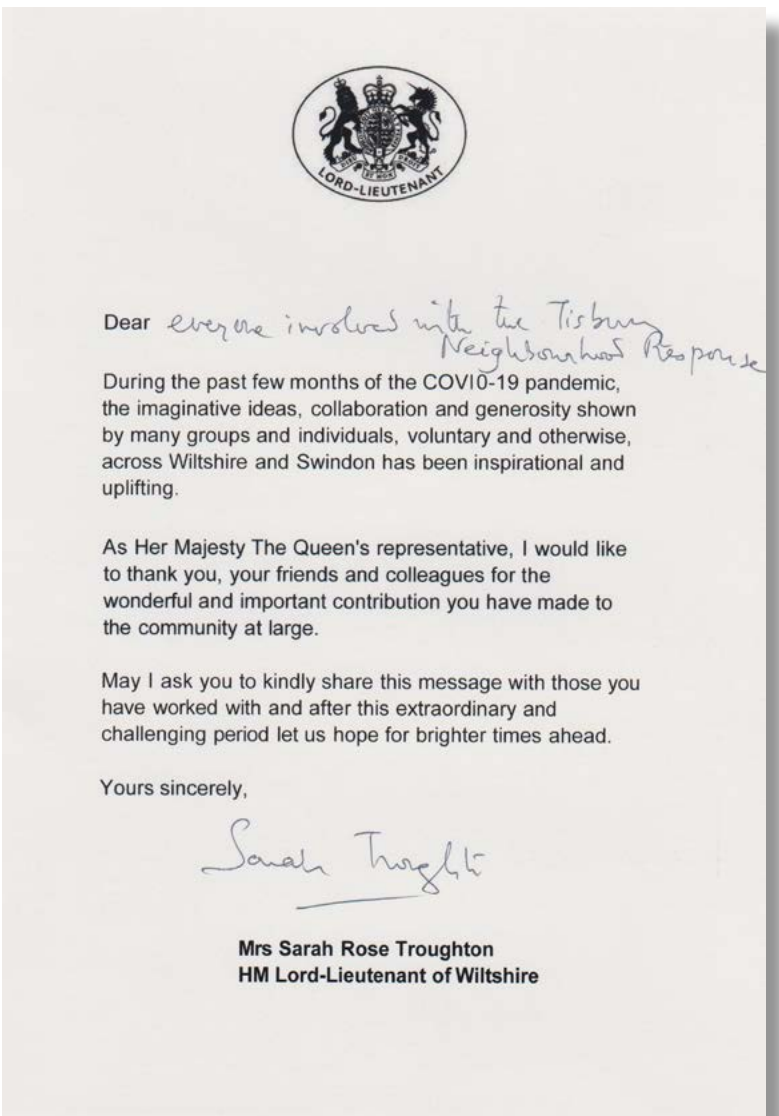 DIEU ET MON DROIT
LORD-LIEUTENANT
Dear everyone involved with the Tisbury
Neighbourhood Response
During the past few months of the COVI0-19 pandemic,
the imaginative ideas, collaboration and generosity shown
by many groups and individuals, voluntary and otherwise,
across Wiltshire and Swindon has been inspirational and
uplifting.
As Her Majesty The Queen's representative, I would like
to thank you, your friends and colleagues for the
wonderful and important contribution you have made to
the community at large.
May I ask you to kindly share this message with those you
have worked with and after this extraordinary and
challenging period let us hope for brighter times ahead.
Yours sincerely,
Sarah Troughton
Mrs Sarah Rose Troughton
HM Lord-Lieutenant of Wiltshire